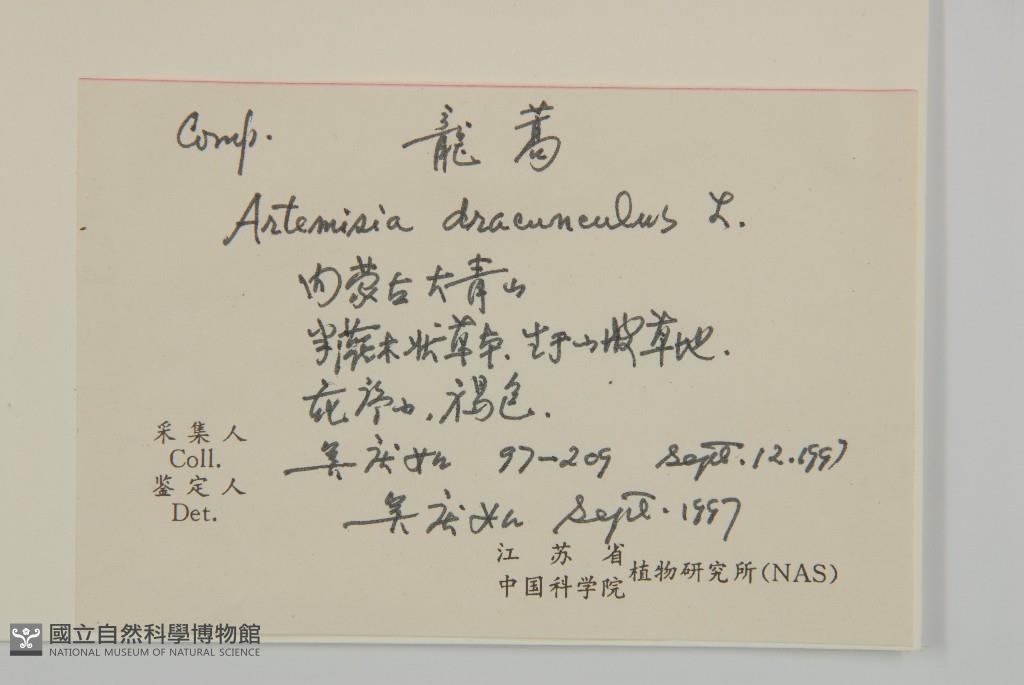 Comp. 龍蒿
Artemisia dracunculus L.
内蒙古大青山
半灌木状草本、生于山坡草地.
花序小，褐色.
采集人
Coll.
吴庆如 97-209 Sept.12.1997
鉴定人
Det.
吴庆如 Sept.1997
江苏省
中国科学院 植物研究所(NAS)
國立自然科學博物館
NATIONAL MUSEUM OF NATURAL SCIENCE